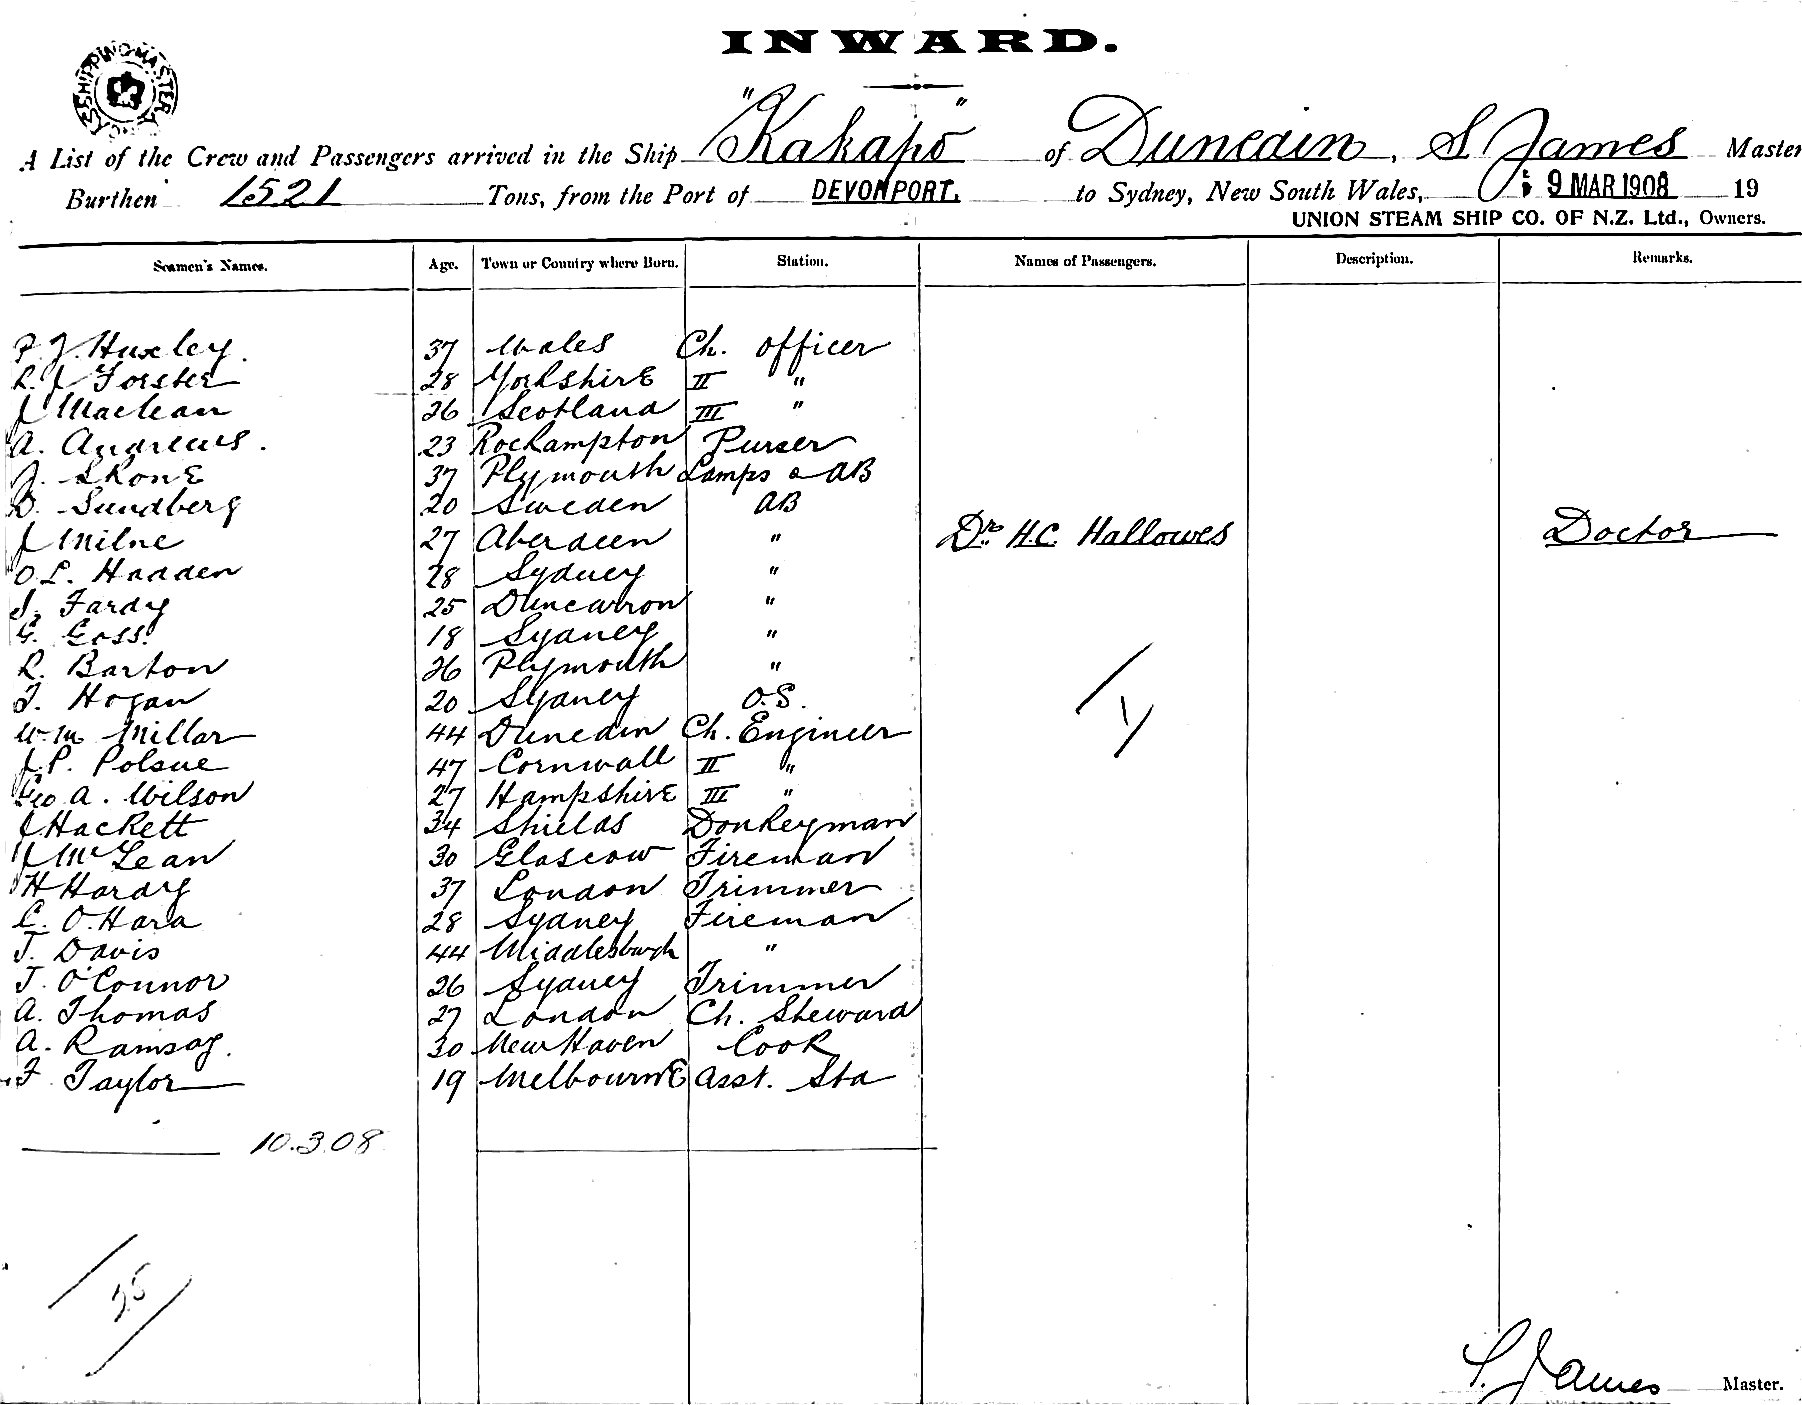 INWARD.
SHIPPING MASTER
A List of the Crew and Passengers arrived in the Ship "Kakapo" of Dunedin, S. James Master
Burthen 1521 Tons, from the Port of DEVONPORT. to Sydney, New South Wales, 9 MAR 1908 19
UNION STEAM SHIP CO. OF N.Z. Ltd., Owners.
Seamen's Names. Age. Town or Country where Born. Station. Names of Passengers. Description. Remarks.
F. J. Huxley. 37 Wales Ch. Officer
R. J Forster 28 Yorkshire II "
J Maclean 26 Scotland III "
A. Andrews. 23 Rockampton Purser
J. Skone 37 Plymouth Lamps & AB
D. Sundberg 20 Sweden AB
J Milne 27 Aberdeen " Dr. H.C. Hallowes Doctor
O L. Hadden 28 Sydney "
J. Fardy 25 Duncarron "
G. Goss. 18 Sydney "
R. Barton 26 Plymouth "
T. Hogan 20 Sydney O.S.
Wm Millar 44 Dunedin Ch. Engineer
J P. Polsue 47 Cornwall II "
Geo A. Wilson 27 Hampshire III "
J Hackett 34 Shields Donkeyman
J McLean 30 Glascow Fireman
H Hardy 37 London Trimmer
C. O'Hara 28 Sydney Fireman
T. Davis 44 Middlesburgh "
T. O'Connor 26 Sydney Trimmer
A. Thomas 27 London Ch. Steward
A. Ramsay. 30 New Haven Cook
F. Taylor 19 Melbourne Asst. Std
10.3.08
25
S. James Master.